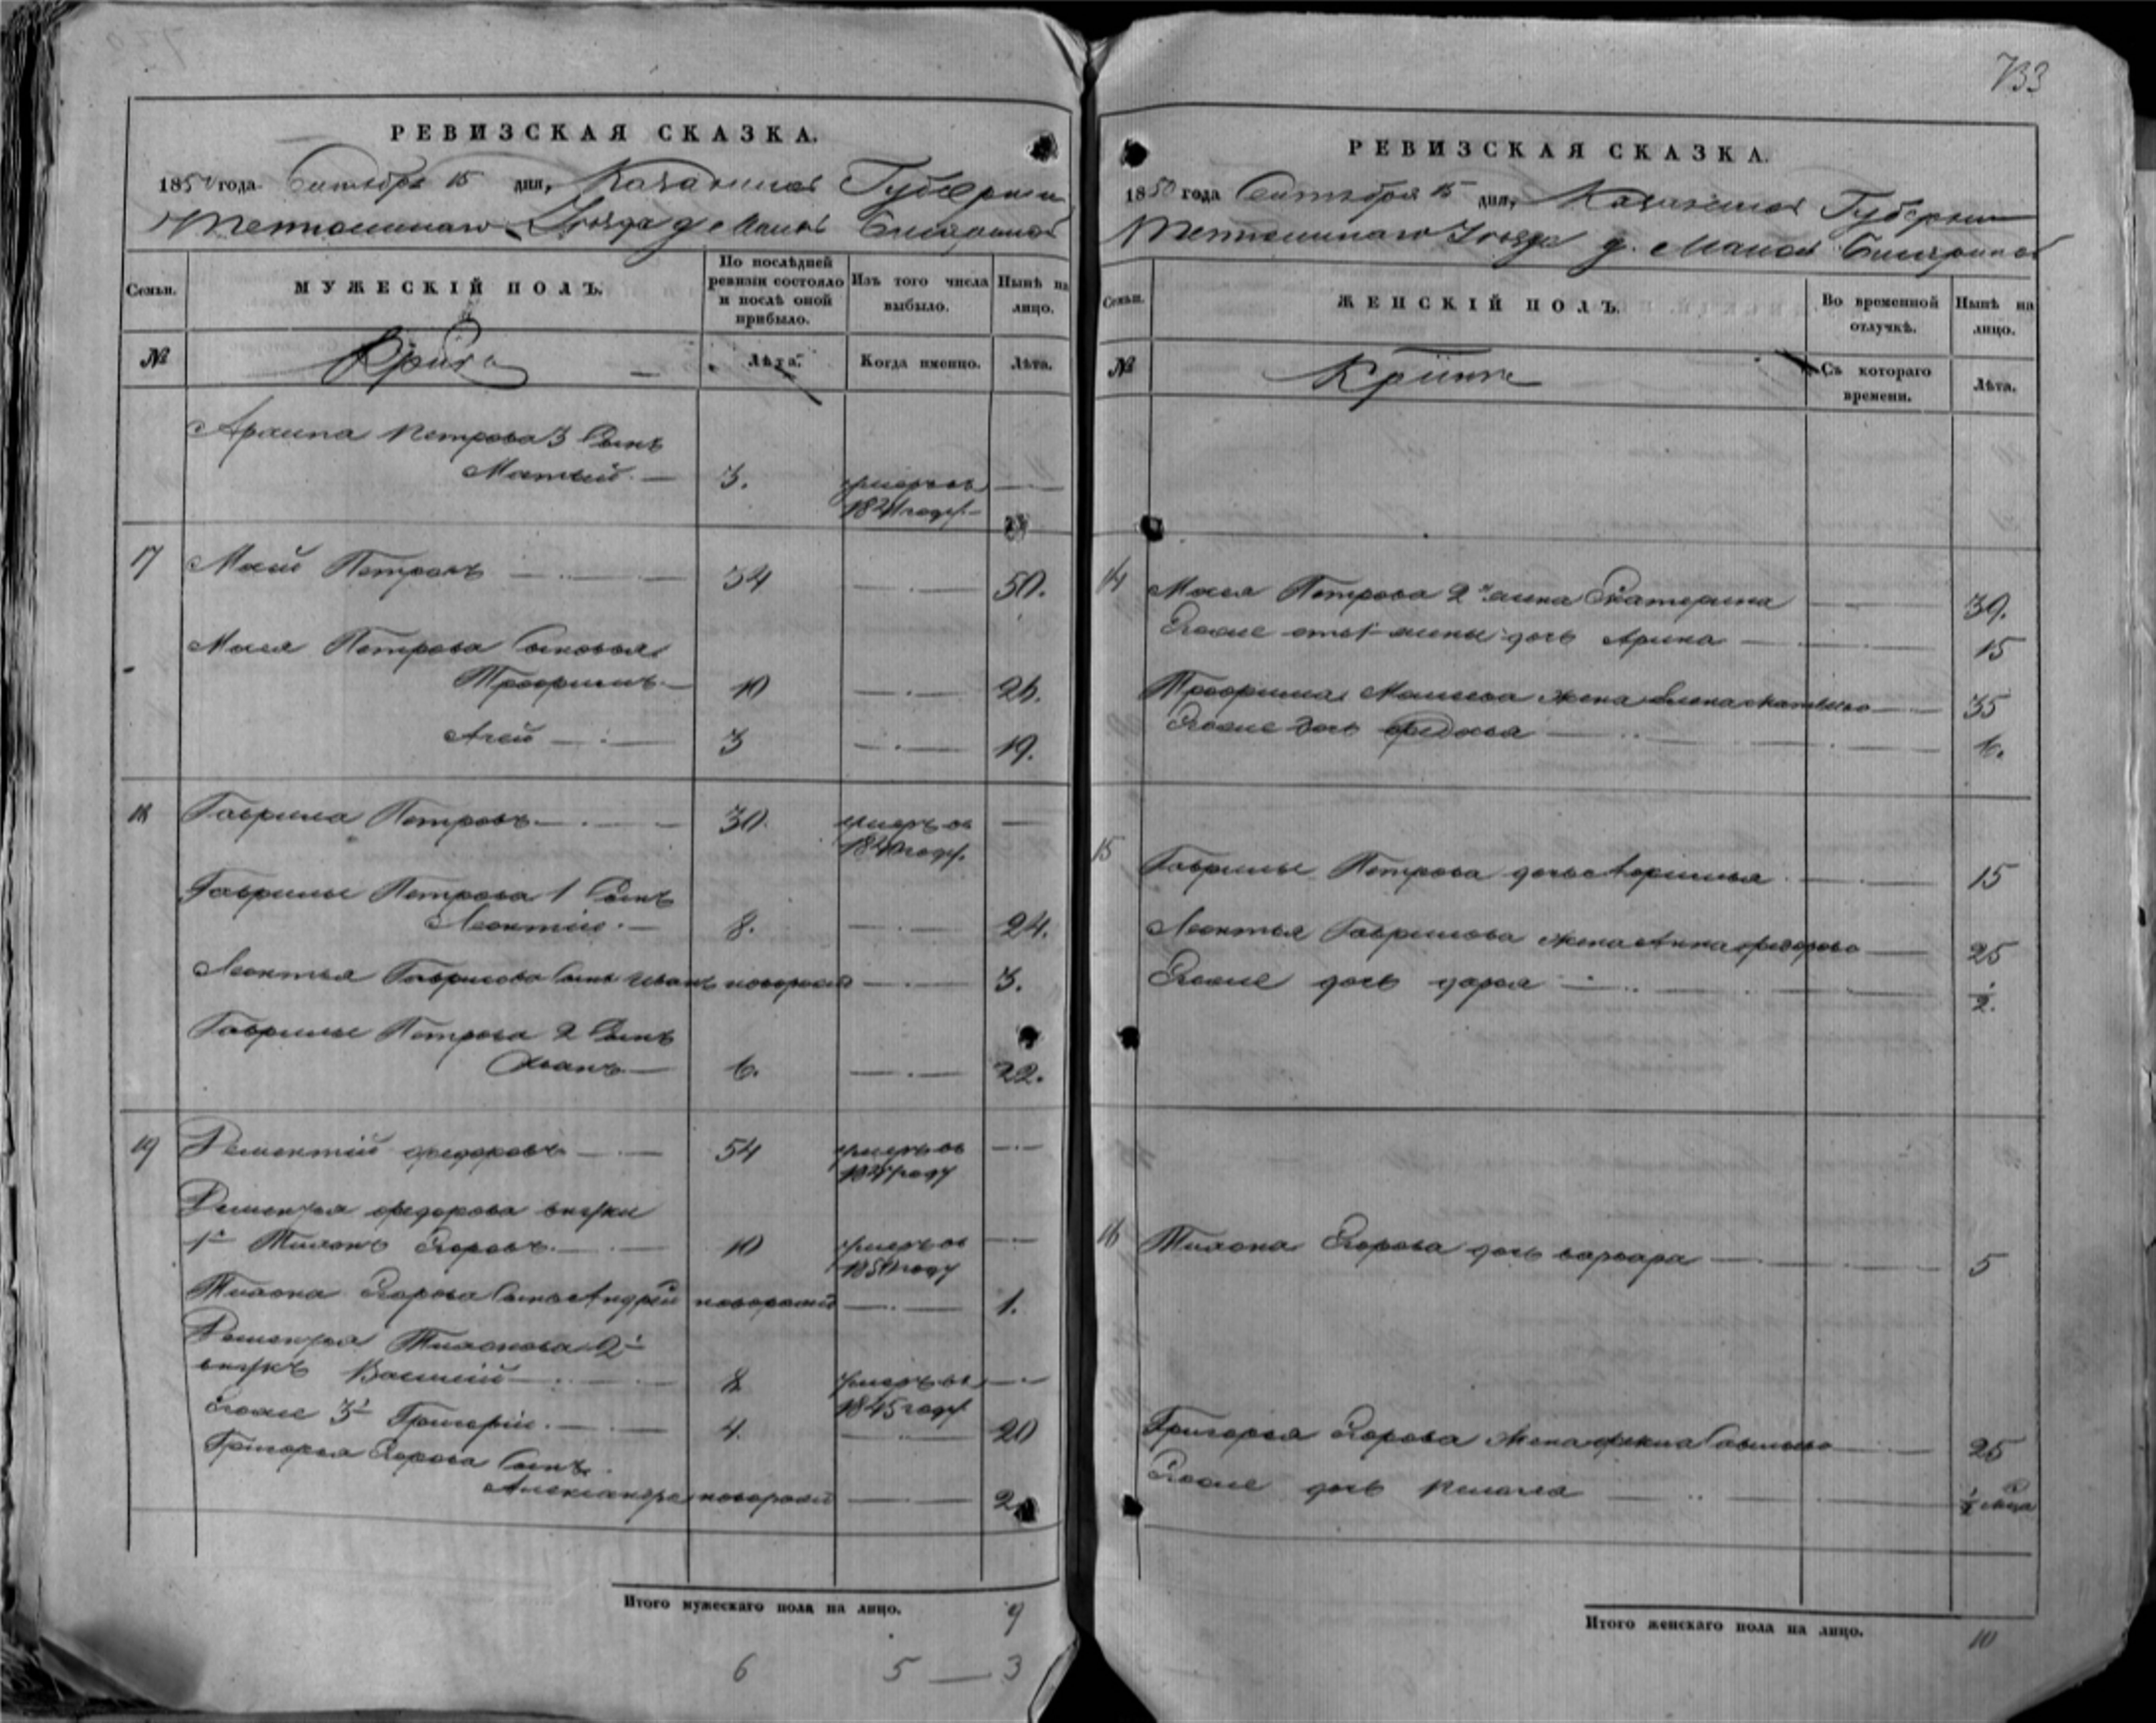 733
РЕВИЗСКАЯ СКАЗКА.
1850 года Сентября 15 дня, Казанской Губернии
Тетюшинаго Уезда д.
Семьи.
МУЖЕСКІЙ ПОЛЪ.
По послѣдней ревизіи состояло и послѣ оной прибыло.
Изъ того числа выбыло.
Нынѣ на лицо.
№
Лѣта.
Когда именно.
Лѣта.
Петрова 3 Сынъ
3. умеръ въ
184 году
17 Петровъ 34 50.
Петрова Сыновья
Трофимъ 10 26.
Агей 3 19.
18 Гаврила Петровъ 30. умеръ въ
1840 году.
Гаврилы Петрова 1 Сынъ
Леонтій 8. 24.
Леонтья Гаврилова Сынъ Иванъ новорож 3.
Гаврилы Петрова 2 Сынъ
Иванъ 6. 22.
19 Дементій Федоровъ 54 умеръ въ
184 году
Дементья Федорова внуки
1й Тихонъ Егоровъ 10 умеръ въ
1850 году
Тихона Егорова Сынъ Андрей новорож 1.
Дементья Тихонова 2й
внукъ Василій 8 умеръ въ
1845 году
Егоже 3й Григорій 4. 20
Григорья Егорова Сынъ
Александръ новорож 2
Итого мужескаго пола на лицо. 9
6 5 — 3
РЕВИЗСКАЯ СКАЗКА.
1850 года Сентября 15 дня, Казанской Губернии
Тетюшинаго Уезда д.
Семьи.
ЖЕНСКІЙ ПОЛЪ.
Во временной отлучкѣ.
Нынѣ на лицо.
№
Съ котораго времени.
Лѣта.
Петрова 2 жена Екатерина 39.
Егоже отъ 1 жены дочь Арина 15
Трофима жена Елена 35
Егоже дочь Федосья 6.
15 Гаврилы Петрова дочь 15
Леонтья Гаврилова жена Анна Федорова 25
Егоже дочь Дарья 1/2.
16 Тихона Егорова дочь Варвара 5
Григорья Егорова жена Фекла 25
Егоже дочь Пелагея
Итого женскаго пола на лицо. 10